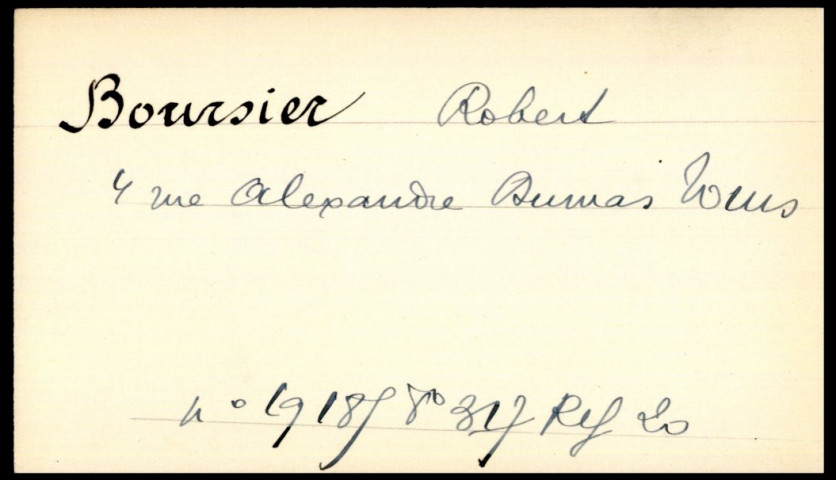 Boursier Robert
4 rue Alexandre Dumas Tours
n° 19187 F° 317 Reg 20